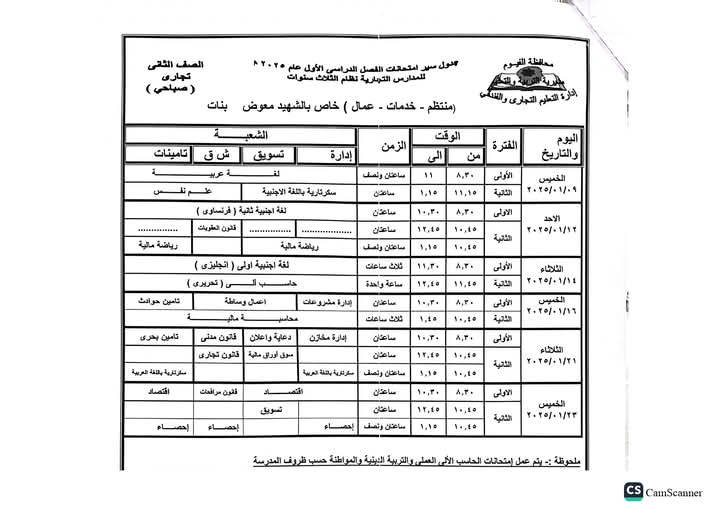 محافظة الفيوم
مديرية التربية والتعليم
إدارة التعليم التجارى والفندقى
جدول سير امتحانات الفصل الدراسى الأول عام ٢٠٢٥
للمدارس التجارية نظام الثلاث سنوات
الصف الثانى
تجارى
( صباحي )
(منتظم - خدمات - عمال ) خاص بالشهيد معوض بنات
اليوم والتاريخ الفترة الوقت الزمن الشعبة
من الى إدارة تسويق ش ق تامينات
الخميس ٢٠٢٥/٠١/٠٩
الأولى ٨,٣٠ ١١ ساعتان ونصف لغة عربية
الثانية ١١,١٥ ١,١٥ ساعتان سكرتارية باللغة الاجنبية علم نفس
الاحد ٢٠٢٥/٠١/١٢
الاولى ٨,٣٠ ١٠,٣٠ ساعتان لغة اجنبية ثانية ( فرنساوى )
الثانية ١٠,٤٥ ١٢,٤٥ ساعتان .................. .............. قانون العقوبات ..............
١٠,٤٥ ١,١٥ ساعتان ونصف رياضة مالية رياضة مالية
الثلاثاء ٢٠٢٥/٠١/١٤
الأولى ٨,٣٠ ١١,٣٠ ثلاث ساعات لغة اجنبية اولى ( انجليزى )
الثانية ١١,٤٥ ١٢,٤٥ ساعة واحدة حاسب ألى ( تحريرى )
الخميس ٢٠٢٥/٠١/١٦
الأولى ٨,٣٠ ١٠,٣٠ ساعتان إدارة مشروعات اعمال وساطة تامين حوادث
الثانية ١٠,٤٥ ١,٤٥ ثلاث ساعات محاسبة مالية
الثلاثاء ٢٠٢٥/٠١/٢١
الأولى ٨,٣٠ ١٠,٣٠ ساعتان إدارة مخازن دعاية واعلان قانون مدنى تامين بحرى
الثانية ١٠,٤٥ ١٢,٤٥ ساعتان سوق أوراق مالية قانون تجارى
١٠,٤٥ ١,١٥ ساعتان ونصف سكرتارية باللغة العربية سكرتارية باللغة العربية
الخميس ٢٠٢٥/٠١/٢٣
الاولى ٨,٣٠ ١٠,٣٠ ساعتان اقتصاد قانون مرافعات اقتصاد
الثانية ١٠,٤٥ ١٢,٤٥ ساعتان تسويق
١٠,٤٥ ١,١٥ ساعتان ونصف إحصاء إحصاء إحصاء
ملحوظة :- يتم عمل إمتحانات الحاسب الألى العملى والتربية الدينية والمواطنة حسب ظروف المدرسة
CS CamScanner